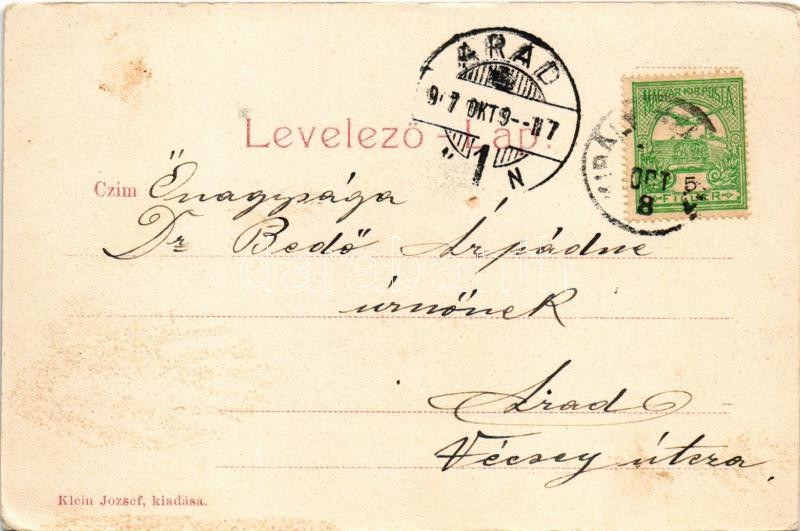 ARAD
907 OKT 9 - N7
1 N
MAGYAR KIR. POSTA
5
FILLÉR
OCT
8
Levelező - Lap.
Czim Őnagysága
Dr Bedő Árpádne
úrnőnek
Arad
Vécsey útcza.
Klein Jozsef, kiadása.